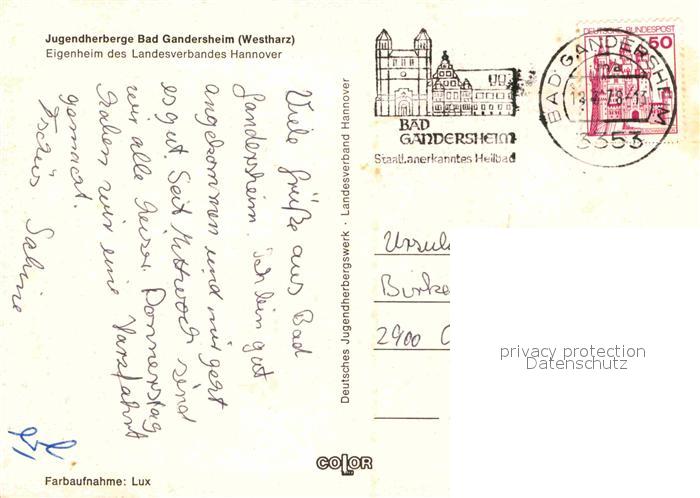 Jugendherberge Bad Gandersheim (Westharz)
Eigenheim des Landesverbandes Hannover
Viele Grüße aus Bad
Gandersheim. Ich bin gut
angekommen und mir geht
es gut. Seit Mittwoch sind
wir alle heiser. Donnerstag
haben wir eine Harzfahrt
gemacht.
Tschüs Sabine
Farbaufnahme: Lux
Deutsches Jugendherbergswerk · Landesverband Hannover
COLOR
LUX
BAD
GANDERSHEIM
Staatl.anerkanntes Heilbad
BAD GANDERSHEIM
3353
DEUTSCHE BUNDESPOST
50
Ursul
Birke
2900 O
privacy protection
Datenschutz